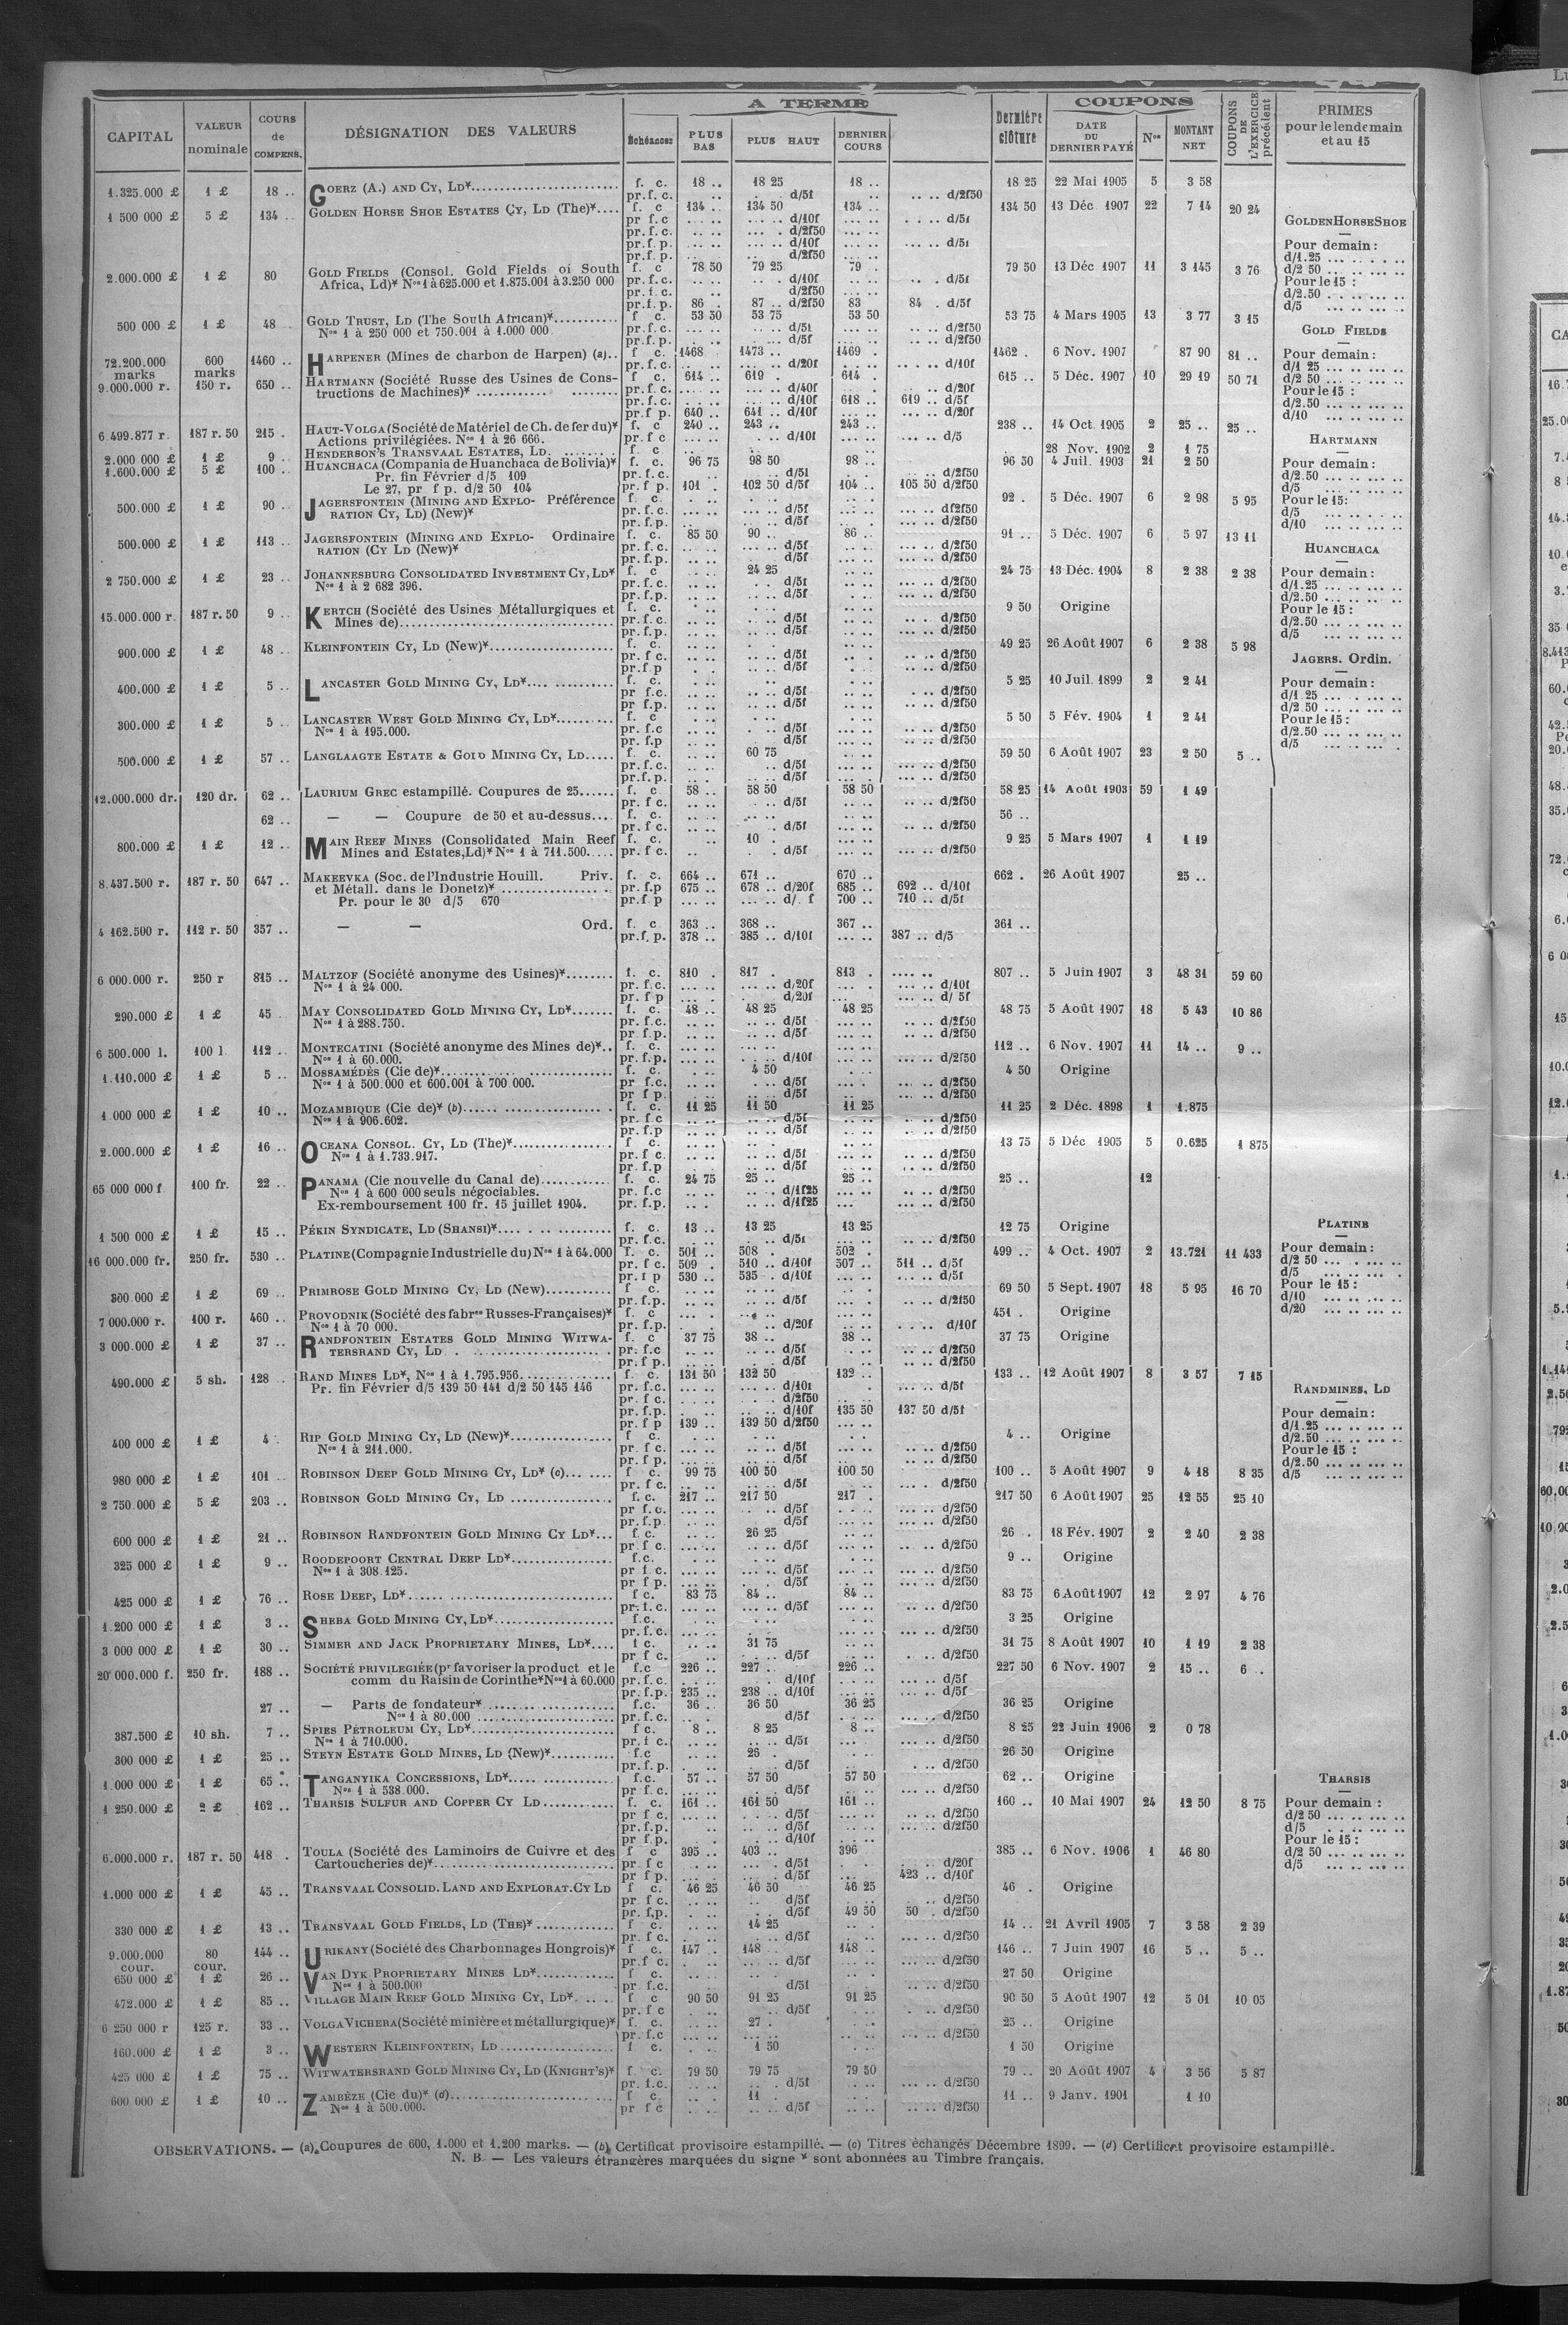 CAPITAL VALEUR nominale COURS de COMPENS. DÉSIGNATION DES VALEURS A TERME Échéances PLUS BAS PLUS HAUT DERNIER COURS Dernière clôture COUPONS DATE DU DERNIER PAYÉ Nos MONTANT NET COUPONS DE L'EXERCICE précédent PRIMES pour le lendemain et au 15
1.325.000 £ 1 £ 18 .. GOERZ (A.) AND CY, LD* f. c. 18 .. 18 25 18 .. 18 25 22 Mai 1905 5 3 58
pr. f. c. d/5f d/2f50
1 500 000 £ 5 £ 134 .. GOLDEN HORSE SHOE ESTATES CY, LD (The)* f. c 134 .. 134 50 134 .. 134 50 13 Déc 1907 22 7 14 20 24
pr f. c d/10f d/5f
pr. f. c. d/2f50
pr. f. p. d/10f d/5f
pr. f. p. d/2f50
2.000.000 £ 1 £ 80 GOLD FIELDS (Consol. Gold Fields of South f. c 78 50 79 25 79 . 79 50 13 Déc 1907 11 3 145 3 76
Africa, Ld)* Nos 1 à 625.000 et 1.875.001 à 3.250 000 pr. f. c. d/10f d/5f
pr. f. c. d/2f50
pr. f. p. 86 . 87 .. d/2f50 83 84 . d/5f
500 000 £ 1 £ 48 .. GOLD TRUST, LD (The South African)* f c. 53 50 53 75 53 50 53 75 4 Mars 1905 13 3 77 3 15
Nos 1 à 250 000 et 750.001 à 1.000 000 pr. f. c. d/5f d/2f50
pr. f. p. d/5f d/2f50
72.200.000 marks 600 marks 1460 .. HARPENER (Mines de charbon de Harpen) (a) f c. 1468 1473 .. 1469 . 1462 . 6 Nov. 1907 87 90 81 ..
pr. f. c. d/20f d/10f
9.000.000 r. 150 r. 650 .. HARTMANN (Société Russe des Usines de Cons- f c. 614 .. 619 . 614 . 615 .. 5 Déc. 1907 10 29 19 50 71
tructions de Machines)* pr. f. c. d/40f d/20f
pr. f. c. d/10f 618 .. 619 .. d/5f
pr. f p. 640 .. 641 .. d/10f d/20f
6.499.877 r. 187 r. 50 215 . HAUT-VOLGA (Société de Matériel de Ch. de fer du)* f c. 240 .. 243 .. 243 .. 238 .. 14 Oct. 1905 2 25 .. 25 ..
Actions privilégiées. Nos 1 à 26 666. pr. f c d/10f d/5
2.000 000 £ 1 £ 9 .. HENDERSON'S TRANSVAAL ESTATES, LD. f c 28 Nov. 1902 2 1 75
1.600.000 £ 5 £ 100 .. HUANCHACA (Compania de Huanchaca de Bolivia)* f. c. 96 75 98 50 98 .. 96 50 4 Juil. 1903 21 2 50
Pr. fin Février d/5 109 pr. f. c. d/5f d/2f50
Le 27, pr f p. d/2 50 104 pr. f p. 101 . 102 50 d/5f 104 .. 105 50 d/2f50
500.000 £ 1 £ 90 .. JAGERSFONTEIN (MINING AND EXPLO- Préférence f c. 92 . 5 Déc. 1907 6 2 98 5 95
RATION CY, LD) (New)* pr. f. c. d/5f d/2f50
pr. f. p. d/5f d/2f50
500.000 £ 1 £ 113 .. JAGERSFONTEIN (MINING AND EXPLO- Ordinaire f. c. 85 50 90 .. 86 .. 91 .. 5 Déc. 1907 6 5 97 13 11
RATION (CY LD (New)* pr. f. c. d/5f d/2f50
pr. f. p. d/5f d/2f50
2 750.000 £ 1 £ 23 .. JOHANNESBURG CONSOLIDATED INVESTMENT CY, LD* f. c 24 25 24 75 13 Déc. 1904 8 2 38 2 38
Nos 1 à 2 682 396. pr. f. c. d/5f d/2f50
pr. f. p. d/5f d/2f50
15.000.000 r. 187 r. 50 9 .. KERTCH (Société des Usines Métallurgiques et f. c. 9 50 Origine
Mines de) pr. f. c. d/5f d/2f50
pr. f. p. d/5f d/2f50
900.000 £ 1 £ 48 .. KLEINFONTEIN CY, LD (New)* f. c. 49 25 26 Août 1907 6 2 38 5 98
pr. f c. d/5f d/2f50
pr. f p d/5f d/2f50
400.000 £ 1 £ 5 .. LANCASTER GOLD MINING CY, LD* f. c. 5 25 10 Juil. 1899 2 2 41
pr f. c. d/5f d/2f50
pr f. p. d/5f d/2f50
300.000 £ 1 £ 5 .. LANCASTER WEST GOLD MINING CY, LD* f. c 5 50 5 Fév. 1904 1 2 41
Nos 1 à 195.000. pr. f. c d/5f d/2f50
pr. f. p d/5f d/2f50
500.000 £ 1 £ 57 .. LANGLAAGTE ESTATE & GOLD MINING CY, LD f. c. 60 75 59 50 6 Août 1907 23 2 50 5 ..
pr. f. c. d/5f d/2f50
pr. f. p. d/5f d/2f50
12.000.000 dr. 120 dr. 62 .. LAURIUM GREC estampillé. Coupures de 25 f. c. 58 .. 58 50 58 50 58 25 14 Août 1903 59 1 49
pr. f c. d/5f d/2f50
62 .. — — Coupure de 50 et au-dessus f. c. 56 ..
pr. f c. d/5f d/2f50
800.000 £ 1 £ 12 .. MAIN REEF MINES (Consolidated Main Reef f. c. 10 . 9 25 5 Mars 1907 1 1 19
Mines and Estates, Ld)* Nos 1 à 711.500 pr. f c. d/5f d/2f50
8.437.500 r. 187 r. 50 647 .. MAKEEVKA (Soc. de l'Industrie Houill. Priv. f. c. 664 .. 671 .. 670 .. 662 . 26 Août 1907 25 ..
et Métall. dans le Donetz)* pr. f. p 675 .. 678 .. d/20f 685 .. 692 .. d/10f
Pr. pour le 30 d/5 670 pr. f p d/. f 700 .. 710 .. d/5f
4 162.500 r. 112 r. 50 357 .. — — Ord. f. c 363 .. 368 .. 367 .. 361 ..
pr. f. p. 378 .. 385 .. d/10f 387 .. d/5
6 000.000 r. 250 r 815 .. MALTZOF (Société anonyme des Usines)* f. c. 810 . 817 . 813 . 807 .. 5 Juin 1907 3 48 31 59 60
Nos 1 à 24 000. pr. f. c. d/20f d/10f
pr. f p d/20f d/ 5f
290.000 £ 1 £ 45 . MAY CONSOLIDATED GOLD MINING CY, LD* f. c. 48 .. 48 25 48 25 48 75 5 Août 1907 18 5 43 10 86
Nos 1 à 288.750. pr. f. c. d/5f d/2f50
pr. f. p. d/5f d/2f50
6 500.000 l. 100 l 112 .. MONTECATINI (Société anonyme des Mines de)* f. c. 112 .. 6 Nov. 1907 11 14 .. 9 ..
Nos 1 à 60.000. pr. f. p. d/10f d/2f50
1.110.000 £ 1 £ 5 .. MOSSAMÉDÈS (Cie de)* f. c. 4 50 4 50 Origine
Nos 1 à 500.000 et 600.001 à 700 000. pr f. c. d/5f d/2f50
pr f p. d/5f d/2f50
1 000 000 £ 1 £ 10 .. MOZAMBIQUE (Cie de)* (b) f. c. 11 25 11 50 11 25 11 25 2 Déc. 1898 1 1.875
Nos 1 à 906.602. pr. f c d/5f d/2f50
pr. f. p d/5f d/2f50
2.000.000 £ 1 £ 16 .. OCEANA CONSOL. CY, LD (The)* f c. 13 75 5 Déc 1905 5 0.625 1 875
Nos 1 à 1.733.917. pr. f c. d/5f d/2f50
pr. f. p d/5f d/2f50
65 000 000 f 100 fr. 22 .. PANAMA (Cie nouvelle du Canal de) f. c. 24 75 25 .. 25 .. 25 .. 12
Nos 1 à 600 000 seuls négociables. pr. f. c d/1f25 d/2f50
Ex-remboursement 100 fr. 15 juillet 1904. pr. f. p. d/1f25 d/2f50
1 500 000 £ 1 £ 15 .. PÉKIN SYNDICATE, LD (SHANSI)* f. c. 13 .. 13 25 13 25 12 75 Origine
pr. f. c. d/5f d/2f50
16 000.000 fr. 250 fr. 530 .. PLATINE (Compagnie Industrielle du) Nos 1 à 64.000 f. c. 501 .. 508 . 502 . 499 .. 4 Oct. 1907 2 13.721 11 433
pr. f c. 509 . 510 .. d/10f 507 .. 511 .. d/5f
pr. f p 530 .. 535 . d/10f d/5f
300.000 £ 1 £ 69 .. PRIMROSE GOLD MINING CY, LD (New) f c. 69 50 5 Sept. 1907 18 5 95 16 70
pr. f. p. d/5f d/2f50
7 000.000 r. 100 r. 460 .. PROVODNIK (Société des fabres Russes-Françaises)* f. c 451 . Origine
Nos 1 à 70 000. pr. f. p. d/20f d/10f
3 000.000 £ 1 £ 37 .. RANDFONTEIN ESTATES GOLD MINING WITWA- f. c 37 75 38 .. 38 .. 37 75 Origine
TERSRAND CY, LD pr. f. c d/5f d/2f50
pr. f p. d/5f d/2f50
490.000 £ 5 sh. 128 .. RAND MINES LD*, Nos 1 à 1.795.956. f. c. 131 50 132 50 132 .. 133 .. 12 Août 1907 8 3 57 7 15
Pr. fin Février d/5 139 50 141 d/2 50 145 146 pr. f. c. d/10f d/5f
pr. f c. d/2f50
pr. f. p. d/10f 135 50 137 50 d/5f
pr. f p 139 .. 139 50 d/2f50
400 000 £ 1 £ 4 . RIP GOLD MINING CY, LD (New)* f c. 4 .. Origine
Nos 1 à 211.000. pr. f c. d/5f d/2f50
pr. f p. d/5f d/2f50
980 000 £ 1 £ 101 .. ROBINSON DEEP GOLD MINING CY, LD* (c) f c. 99 75 100 50 100 50 100 .. 5 Août 1907 9 4 18 8 35
pr. f c. d/5f d/2f50
2 750.000 £ 5 £ 203 .. ROBINSON GOLD MINING CY, LD f. c. 217 .. 217 50 217 . 217 50 6 Août 1907 25 12 55 25 10
pr f. c. d/5f d/2f50
pr. f. p. d/5f d/2f50
600 000 £ 1 £ 21 .. ROBINSON RANDFONTEIN GOLD MINING CY LD* f c. 26 25 26 . 18 Fév. 1907 2 2 40 2 38
pr f c. d/5f d/2f50
325 000 £ 1 £ 9 .. ROODEPOORT CENTRAL DEEP LD* f. c. 9 .. Origine
Nos 1 à 308.125. pr f c. d/5f d/2f50
pr f p. d/5f d/2f50
425 000 £ 1 £ 76 .. ROSE DEEP, LD* f c. 83 75 84 .. 84 .. 83 75 6 Août 1907 12 2 97 4 76
pr. f. c. d/5f d/2f50
1.200 000 £ 1 £ 3 .. SHEBA GOLD MINING CY, LD* f. c. 3 25 Origine
pr. f. c. d/2f50
3 000 000 £ 1 £ 30 .. SIMMER AND JACK PROPRIETARY MINES, LD* f c. 31 75 31 75 8 Août 1907 10 1 19 2 38
pr f c. d/5f d/2f50
20 000.000 f. 250 fr. 188 .. SOCIÉTÉ PRIVILÉGIÉE (pr favoriser la product et le f. c 226 .. 227 .. 226 .. 227 50 6 Nov. 1907 2 15 .. 6 ..
comm du Raisin de Corinthe* Nos 1 à 60.000 pr. f. c. d/10f d/5f
pr. f. p. 235 .. 238 .. d/10f d/5f
27 .. — Parts de fondateur* f. c. 36 .. 36 50 36 25 36 25 Origine
Nos 1 à 80.000 pr. f. c. d/5f d/2f50
387.500 £ 10 sh. 7 .. SPIES PÉTROLEUM CY, LD* f c. 8 .. 8 25 8 .. 8 25 22 Juin 1906 2 0 78
Nos 1 à 710.000. pr. f c. d/5f d/2f50
300 000 £ 1 £ 25 .. STEYN ESTATE GOLD MINES, LD (New)* f. c 26 . 26 50 Origine
pr. f. p. d/5f d/2f50
1.000 000 £ 1 £ 65 .. TANGANYIKA CONCESSIONS, LD* f. c. 57 .. 57 50 57 50 62 .. Origine
Nos 1 à 538.000. pr f. c. d/5f d/2f50
1 250.000 £ 2 £ 162 .. THARSIS SULFUR AND COPPER CY LD f. c. 161 .. 161 50 161 .. 160 .. 10 Mai 1907 24 12 50 8 75
pr f c. d/5f d/2f50
pr. f. p. d/5f d/2f50
pr f. p. d/10f
6.000.000 r. 187 r. 50 418 . TOULA (Société des Laminoirs de Cuivre et des f c 395 .. 403 .. 396 385 .. 6 Nov. 1906 1 46 80
Cartoucheries de)* pr f c d/5f d/20f
pr f p. d/5f 423 .. d/10f
1.000 000 £ 1 £ 45 .. TRANSVAAL CONSOLID. LAND AND EXPLORAT. CY LD f c. 46 25 46 50 46 25 46 . Origine
pr f c. d/5f d/2f50
pr. f. p. d/5f 49 50 50 . d/2f50
330 000 £ 1 £ 13 .. TRANSVAAL GOLD FIELDS, LD (THE)* f c. 14 25 14 .. 21 Avril 1905 7 3 58 2 39
pr. f c. d/5f d/2f50
9.000.000 cour. 80 cour. 144 .. URIKANY (Société des Charbonnages Hongrois)* f c. 147 . 148 .. 148 .. 146 .. 7 Juin 1907 16 5 .. 5 ..
pr. f c. d/5f d/2f50
650 000 £ 1 £ 26 .. VAN DYK PROPRIETARY MINES LD* f c. 27 50 Origine
Nos 1 à 500.000 pr f. c. d/5f d/2f50
472.000 £ 1 £ 85 .. VILLAGE MAIN REEF GOLD MINING CY, LD* f c 90 50 91 25 91 25 90 50 5 Août 1907 12 5 01 10 05
pr. f c d/5f d/2f50
6 250 000 r 125 r. 33 .. VOLGA VICHERA (Société minière et métallurgique)* f. c. 27 . 25 .. Origine
pr. f. c d/2f50
160.000 £ 1 £ 3 .. WESTERN KLEINFONTEIN, LD f c. 1 50 1 50 Origine
425 000 £ 1 £ 75 .. WITWATERSRAND GOLD MINING CY, LD (KNIGHT'S)* f c. 79 50 79 75 79 50 79 .. 20 Août 1907 4 3 56 5 87
pr. f. c. d/5f d/2f50
600 000 £ 1 £ 10 .. ZAMBÈZE (Cie du)* (d) f c 11 11 .. 9 Janv. 1901 1 10
Nos 1 à 500.000. pr f c d/5f d/2f50
GOLDEN HORSE SHOE
Pour demain :
d/1.25
d/2 50
Pour le 15 :
d/2.50
d/5
GOLD FIELDS
Pour demain :
d/1 25
d/2 50
Pour le 15 :
d/2.50
d/10
HARTMANN
Pour demain :
d/2.50
d/5
Pour le 15 :
d/5
d/10
HUANCHACA
Pour demain :
d/1.25
d/2.50
Pour le 15 :
d/2.50
d/5
JAGERS. Ordin.
Pour demain :
d/1 25
d/2.50
Pour le 15 :
d/2.50
d/5
PLATINE
Pour demain :
d/2 50
d/5
Pour le 15 :
d/10
d/20
RANDMINES, LD
Pour demain :
d/1.25
d/2.50
Pour le 15 :
d/2.50
d/5
THARSIS
Pour demain :
d/2 50
d/5
Pour le 15 :
d/2 50
d/5
OBSERVATIONS. — (a) Coupures de 600, 1.000 et 1.200 marks. — (b) Certificat provisoire estampillé. — (c) Titres échangés Décembre 1899. — (d) Certificat provisoire estampillé.
N. B. — Les valeurs étrangères marquées du signe * sont abonnées au Timbre français.